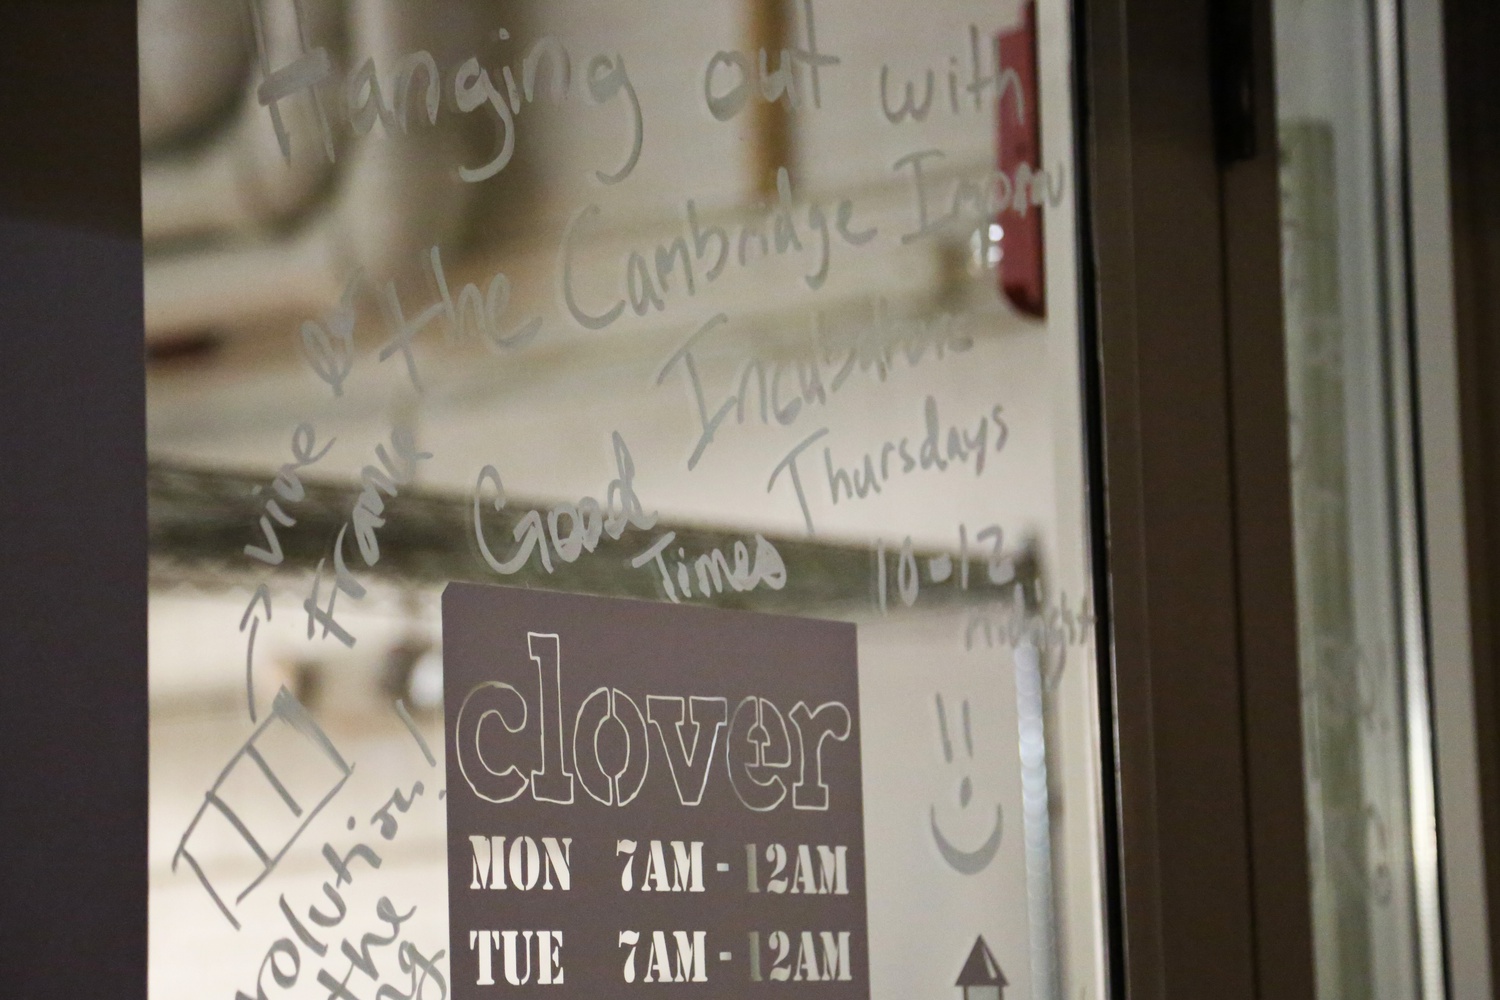 Hanging out with
the Cambridge Improv
Incubator
Thursdays
10-12
midnight
!!
Good
Times
vive
France
olution!
the
clover
MON 7AM - 12AM
TUE 7AM - 12AM